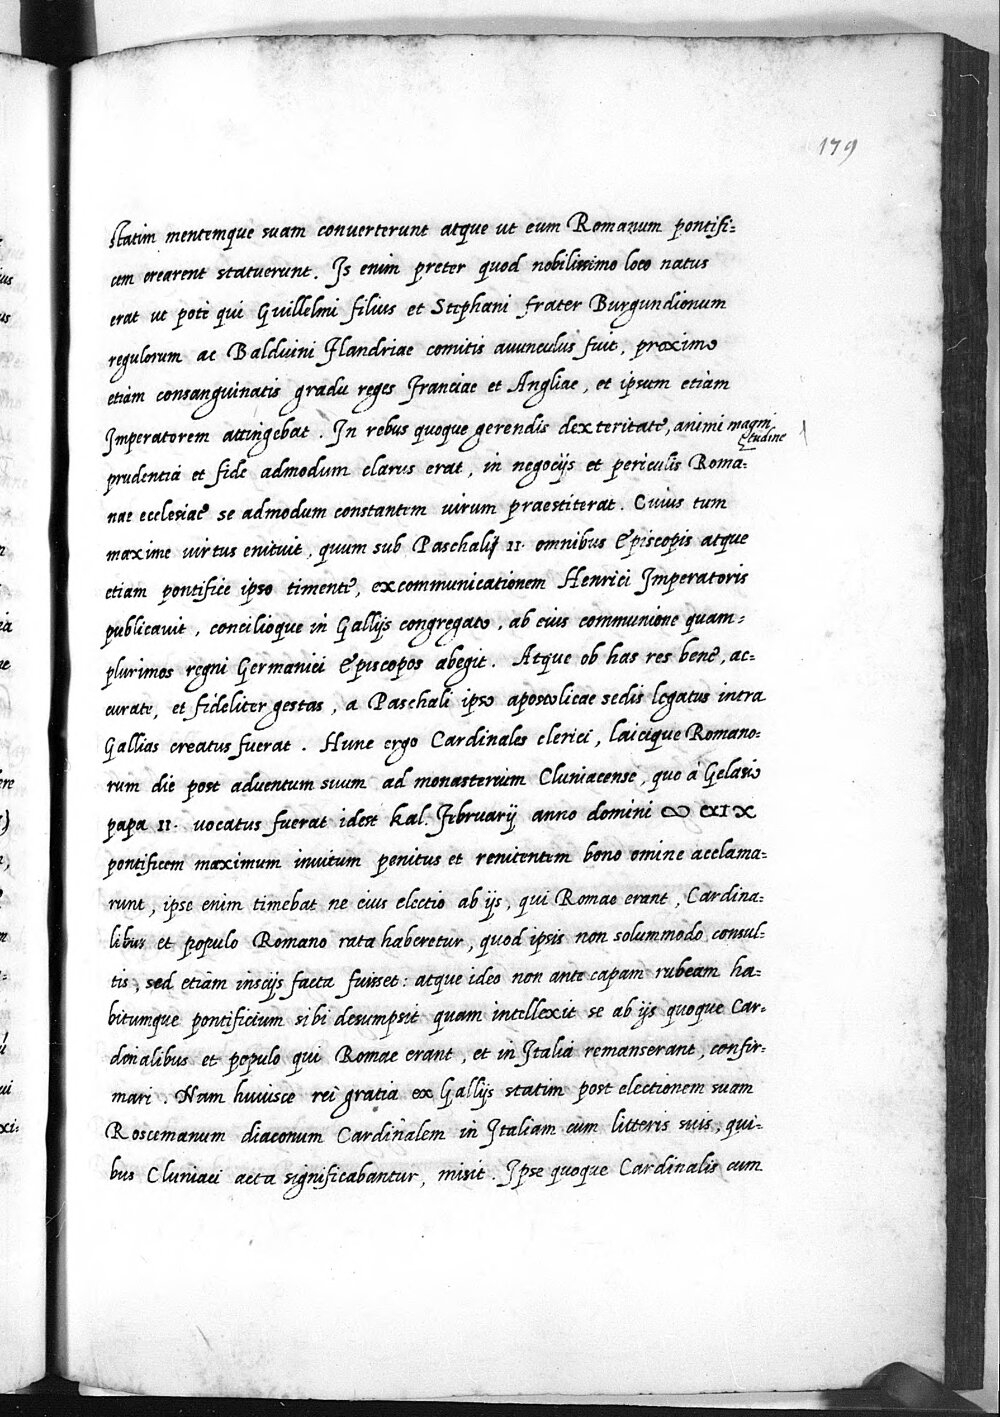 179
statim mentemque suam converterunt atque ut eum Romanum pontifi=
cem crearent statuerunt. Is enim preter quod nobilissimo loco natus
erat ut potè qui Guillelmi filius et Stephani frater Burgundionum
regulorum ac Balduini Flandriae comitis avunculus fuit, proximo
etiam consanguinatis gradu reges Franciae et Angliae, et ipsum etiam
Imperatorem attingebat. In rebus quoque gerendis dexteritate, animi magni
tudine
prudentia et fide admodum clarus erat, in negocijs et periculis Roma=
nae ecclesiae se admodum constantem virum praestiterat. Cuius tum
maxime virtus enituit, quum sub Paschalij II. omnibus Episcopis atque
etiam pontifice ipso timente, excommunicationem Henrici Imperatoris
publicavit, concilioque in Gallijs congregato, ab eius communione quam=
plurimos regni Germanici Episcopos abegit. Atque ob has res bene, ac=
curate, et fideliter gestas, a Paschali ipso apostolicae sedis legatus intra
Gallias creatus fuerat. Hunc ergo Cardinales clerici, laicique Romano=
rum die post adventum suum ad monasterium Cluniacense, quo á Gelasio
papa II. vocatus fuerat idest kal. Februarij anno domini ∞ CXIX
pontificem maximum invitum penitus et renitentem bono omine acclama=
runt, ipse enim timebat ne eius electio ab ijs, qui Romae erant, Cardina=
libus et populo Romano rata haberetur, quod ipsis non solummodo consul=
tis, sed etiam inscijs facta fuisset: atque ideo non ante capam rubeam ha=
bitumque pontificium sibi desumpsit quam intellexit se ab ijs quoque Car=
dinalibus et populo qui Romae erant, et in Italia remanserant, confir=
mari. Nam huiusce rei gratia ex Gallijs statim post electionem suam
Roscemanum diaconum Cardinalem in Italiam cum litteris suis, qui=
bus Cluniaci acta significabantur, misit. Ipse quoque Cardinalis cum